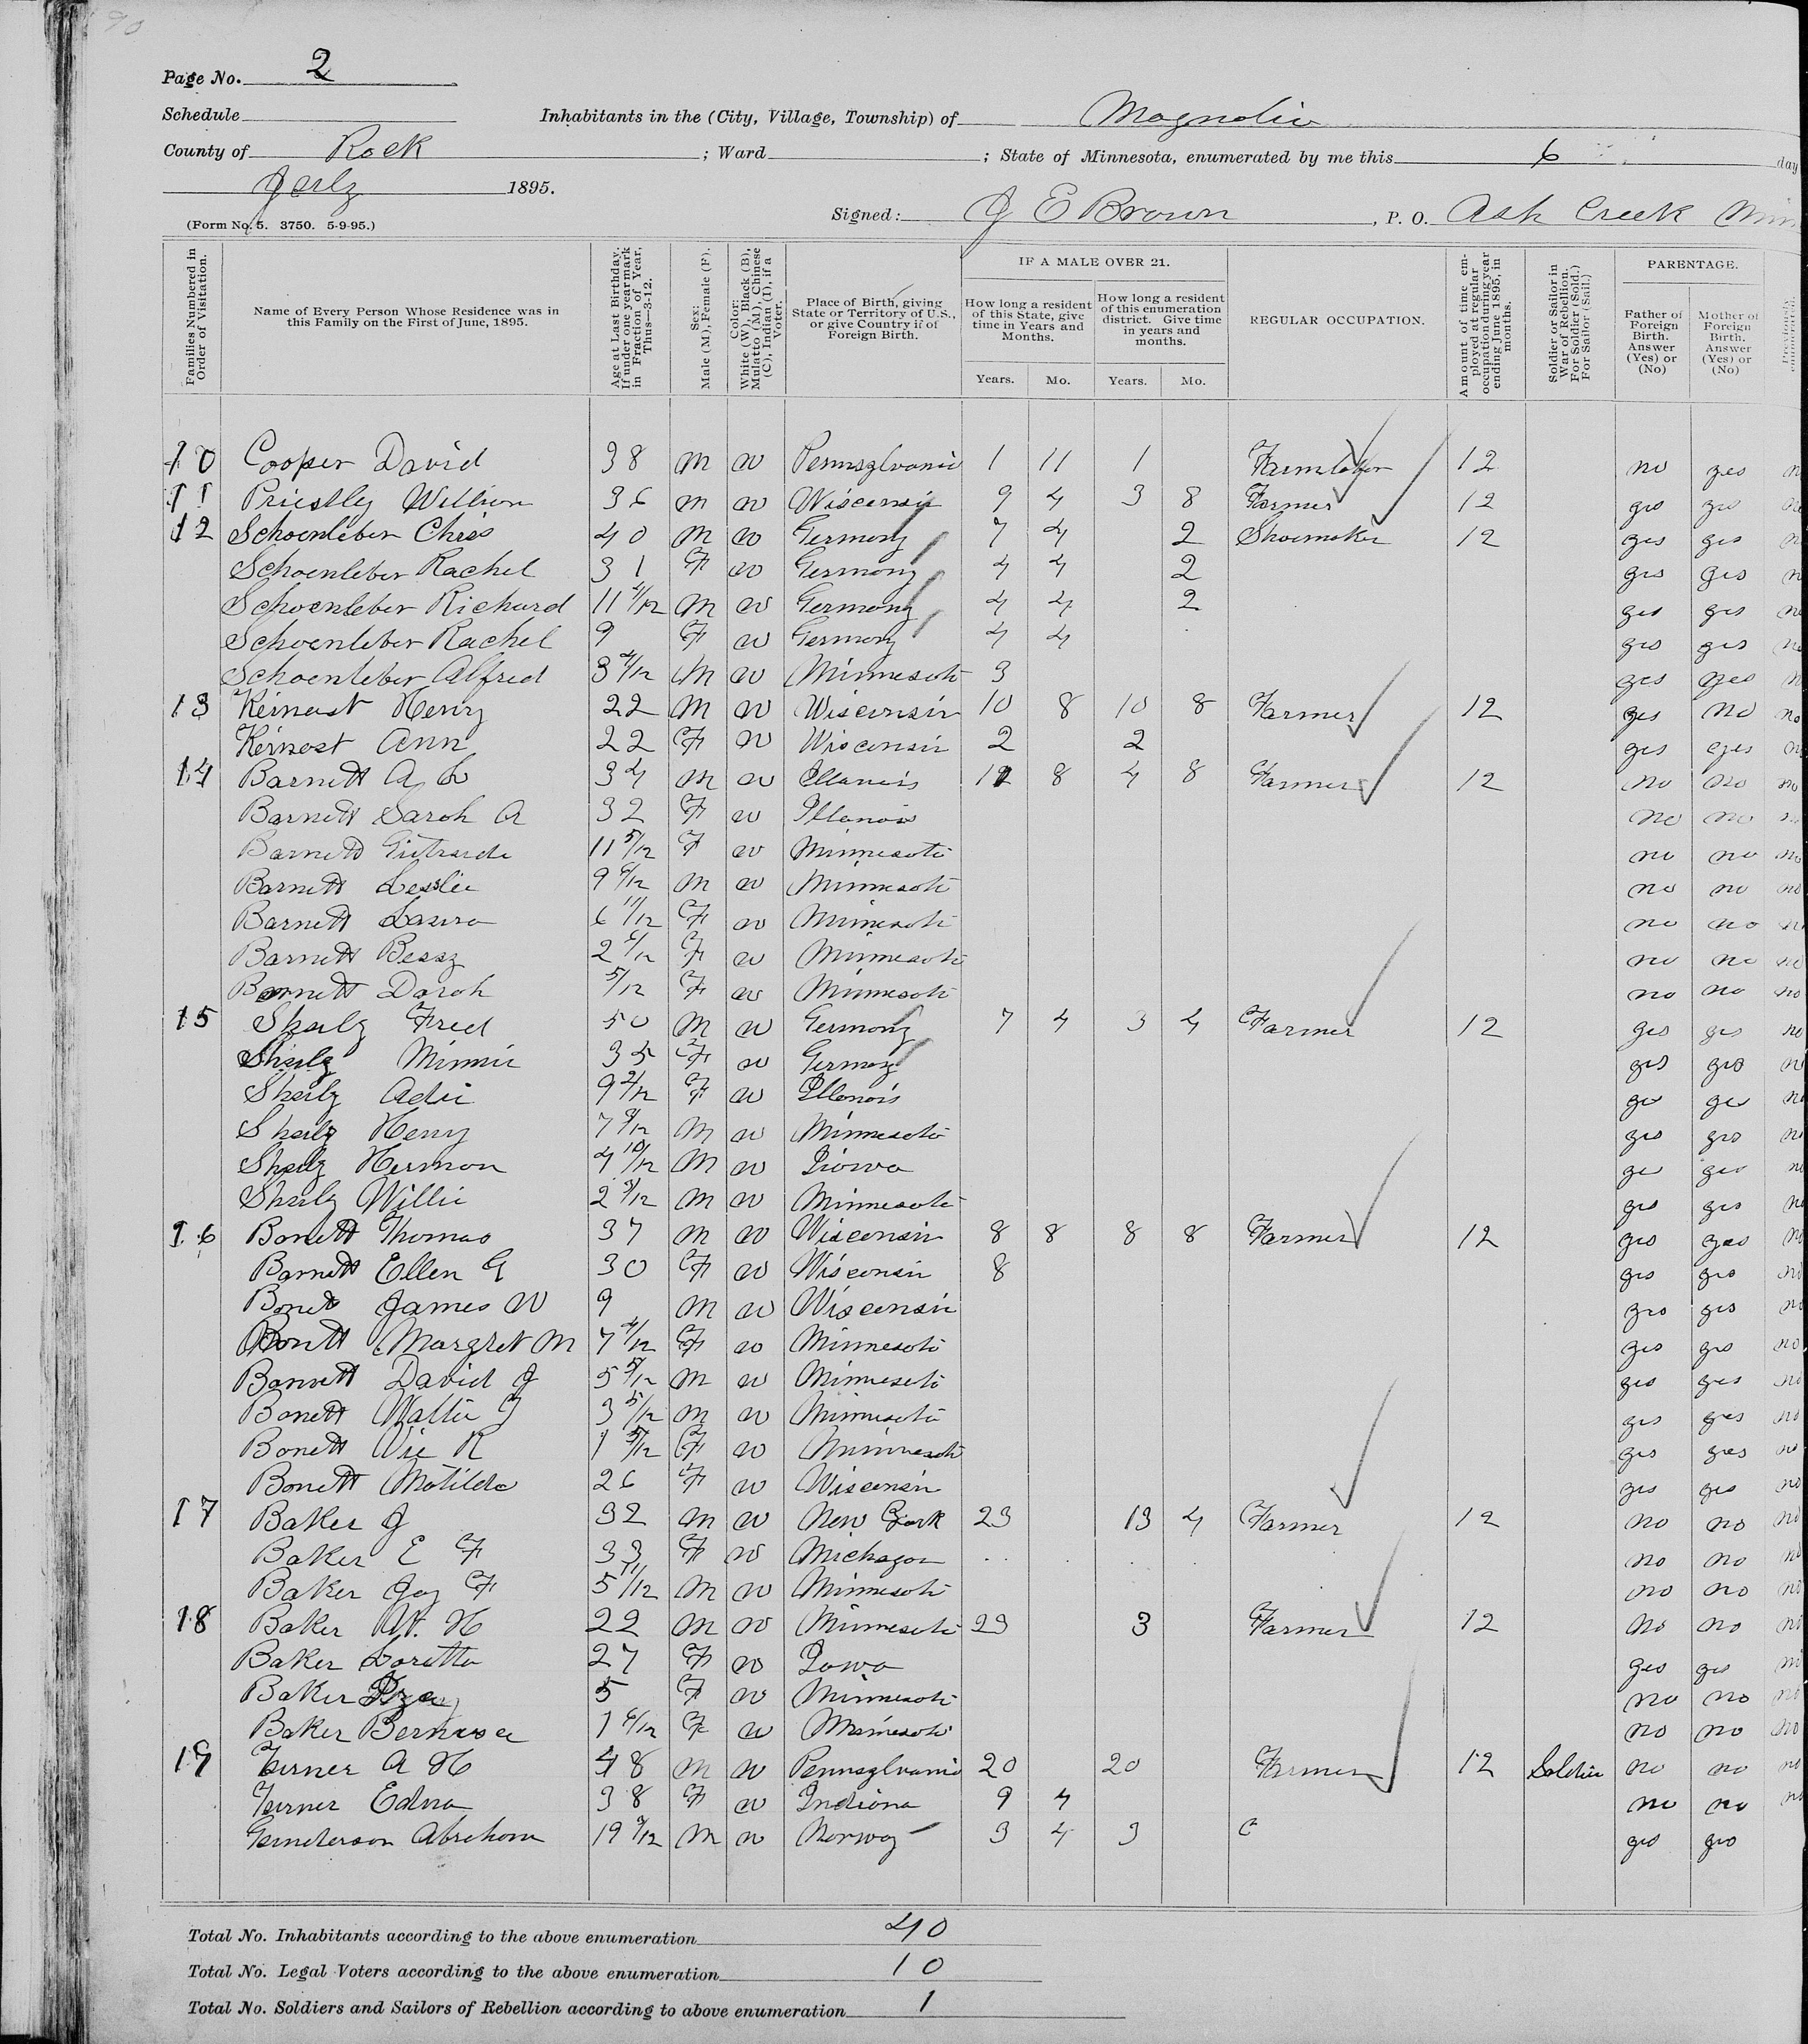 Page No. 2
Schedule Inhabitants in the (City, Village, Township) of Magnolia
County of Rock ; Ward ; State of Minnesota, enumerated by me this 6 day
July 1895.
(Form No. 5. 3750. 5-9-95.) Signed: J E Brown , P. O. Ash Creek Min
Families Numbered in Order of Visitation.
Name of Every Person Whose Residence was in this Family on the First of June, 1895.
Age at Last Birthday. If under one year mark in Fraction of Year, Thus—3-12.
Sex: Male (M), Female (F).
Color: White (W), Black (B), Mulatto (M), Chinese (C), Indian (I), if a Voter.
Place of Birth, giving State or Territory of U.S., or give Country if of Foreign Birth.
IF A MALE OVER 21.
How long a resident of this State, give time in Years and Months.
How long a resident of this enumeration district. Give time in years and months.
Years. Mo. Years. Mo.
REGULAR OCCUPATION.
Amount of time employed at regular occupation during year ending June 1895, in months.
Soldier or Sailor in War of Rebellion. For Soldier (Sold.) For Sailor (Sail.)
PARENTAGE.
Father of Foreign Birth. Answer (Yes) or (No)
Mother of Foreign Birth. Answer (Yes) or (No)
Previously enumerated.
10 Cooper David 38 M W Pennsylvania 1 11 1 12 no yes n
11 Priestly William 36 M W Wisconsin 9 4 3 8 Farmer 12 yes yes no
12 Schoenleber Chris 40 M W Germany 7 4 2 Shoemaker 12 yes yes n
Schoenleber Rachel 31 F W Germany 4 4 2 yes yes n
Schoenleber Richard 11 4/12 M W Germany 4 4 2 yes yes no
Schoenleber Rachel 9 F W Germany 4 4 yes yes no
Schoenleber Alfred 3 4/12 M W Minnesota 3 yes yes n
13 Keinast Henry 22 M W Wisconsin 10 8 10 8 Farmer 12 yes no no
Keinast Ann 22 F W Wisconsin 2 2 yes yes n
14 Barnett A L 34 M W Illanois 12 8 4 8 Farmer 12 no no no
Barnett Sarah A 32 F W Illanois no no n
Barnett Girtrude 11 5/12 F W Minnesota no no no
Barnett Lesslie 9 6/12 M W Minnesota no no no
Barnett Laura 6 11/12 F W Minnesota no no n
Barnett Bessy 2 6/12 F W Minnesota no no no
Barnett Darah 5/12 F W Minnesota no no no
15 Shulz Fred 50 M W Germany 7 4 3 4 Farmer 12 yes yes no
Shulz Minnie 35 F W Germany yes yes n
Shulz Adie 9 2/12 F W Illanois yes yes no
Shulz Henry 7 9/12 M W Minnesota yes yes n
Shulz Herman 4 10/12 M W Iowa yes yes n
Shulz Willie 2 3/12 M W Minnesota yes yes no
16 Bonett Thomas 37 M W Wisconsin 8 8 8 8 Farmer 12 yes yes no
Barnett Ellen G 30 F W Wisconsin 8 yes yes no
Bonet James W 9 M W Wisconsin yes yes no
Bonett Margret M 7 4/12 F W Minnesota yes yes no
Bonnett David J 5 5/12 M W Minnesota yes yes no
Bonett Walter J 3 5/12 M W Minnesota yes yes no
Bonett Vie R 1 5/12 F W Minnesota yes yes no
Bonett Matilda 26 F W Wisconsin yes yes no
17 Baker J 32 M W New York 23 13 4 Farmer 12 no no no
Baker E F 33 F W Michagan no no no
Baker Jay F 5 11/12 M W Minnesota no no no
18 Baker W. H 22 M W Minnesota 23 3 Farmer 12 no no no
Baker Loretta 27 F W Iowa yes yes no
Baker 5 F W Minnesota no no no
Baker 1 6/12 F W Minnesota no no no
19 Turner A H 48 M W Pennsylvania 20 20 Farmer 12 Soldier no no no
Turner Edna 38 F W Indiana 9 4 no no n
Gunderson Abraham 19 9/12 M W Norway 3 4 3 yes yes
Total No. Inhabitants according to the above enumeration 40
Total No. Legal Voters according to the above enumeration 10
Total No. Soldiers and Sailors of Rebellion according to above enumeration 1